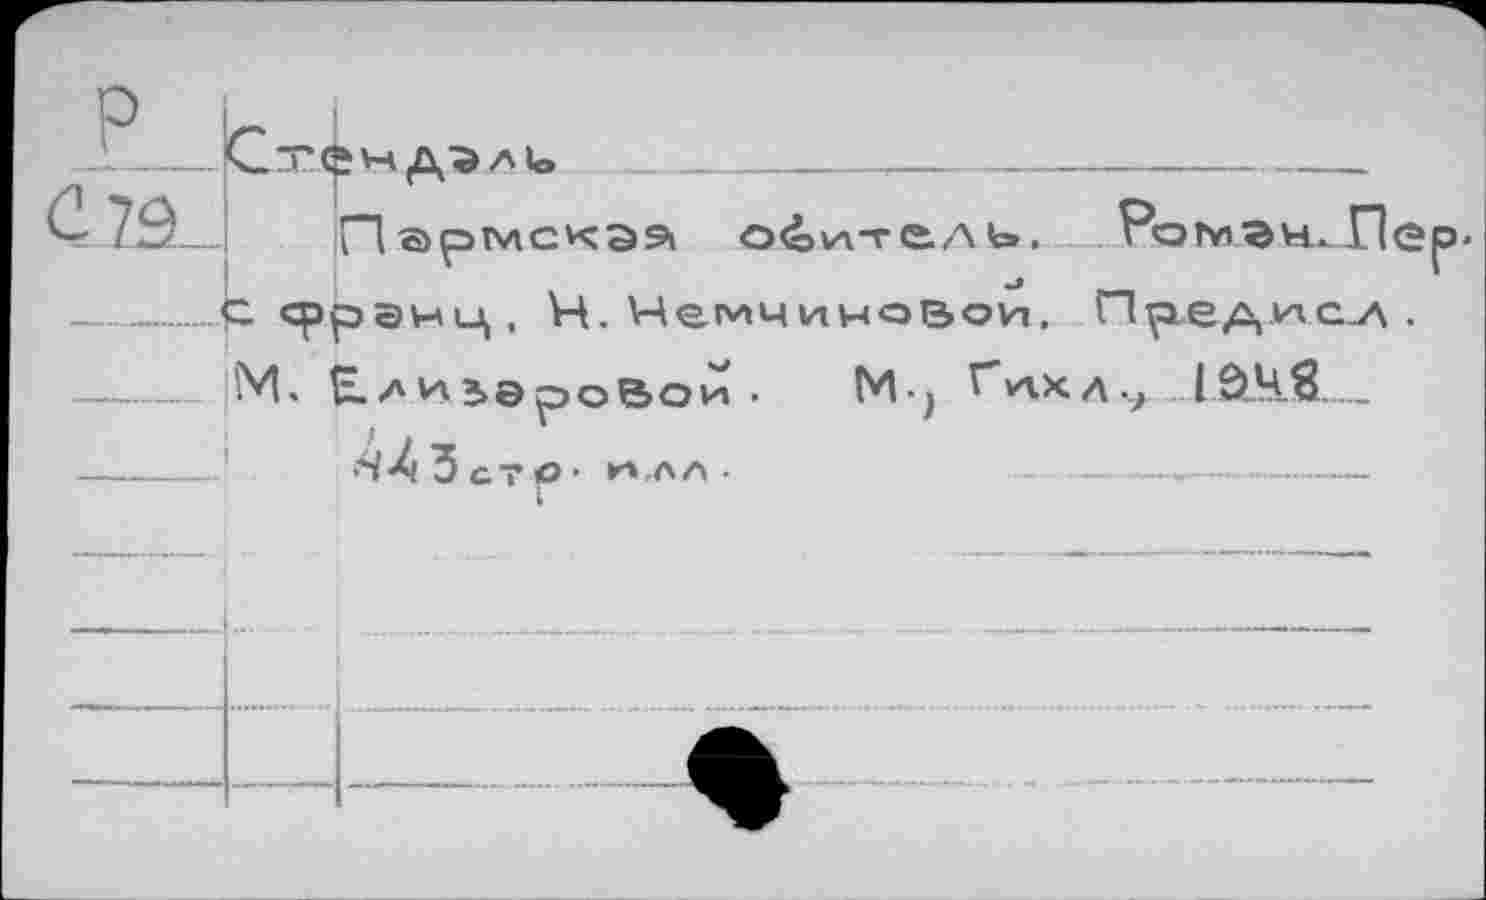 Р
Стендаль
С79
Пармская обитель. Роман. Пер.
с франц. Н. Немчиновой. Предисл.
М. Елизаровой. М., Гихл., 1948
443 стр. илл.